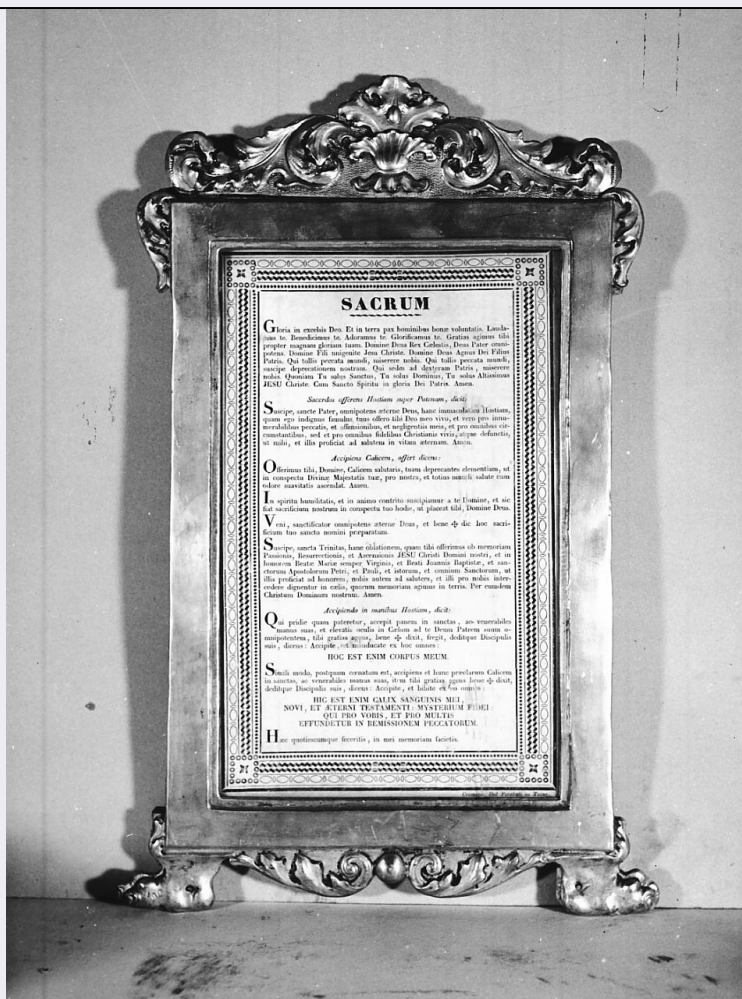 SACRUM
Gloria in excelsis Deo. Et in terra pax hominibus bonæ voluntatis. Lauda-
mus te. Benedicimus te. Adoramus te. Glorificamus te. Gratias agimus tibi
propter magnam gloriam tuam. Domine Deus Rex Cœlestis, Deus Pater omni-
potens. Domine Fili unigenite Jesu Christe. Domine Deus Agnus Dei Filius
Patris. Qui tollis peccata mundi, miserere nobis. Qui tollis peccata mundi,
suscipe deprecationem nostram. Qui sedes ad dexteram Patris, miserere
nobis. Quoniam Tu solus Sanctus, Tu solus Dominus, Tu solus Altissimus
JESU Christe. Cum Sancto Spiritu in gloria Dei Patris. Amen.
Sacerdos offerens Hostiam super Patenam, dicit:
Suscipe, sancte Pater, omnipotens æterne Deus, hanc immaculatam Hostiam,
quam ego indignus famulus tuus offero tibi Deo meo vivo, et vero pro innu-
merabilibus peccatis, et offensionibus, et negligentiis meis, et pro omnibus cir-
cumstantibus, sed et pro omnibus fidelibus Christianis vivis, atque defunctis,
ut mihi, et illis proficiat ad salutem in vitam æternam. Amen.
Accipiens Calicem, offert dicens:
Offerimus tibi, Domine, Calicem salutaris, tuam deprecantes clementiam, ut
in conspectu Divinæ Majestatis tuæ, pro nostra, et totius mundi salute cum
odore suavitatis ascendat. Amen.
In spiritu humilitatis, et in animo contrito suscipiamur a te Domine, et sic
fiat sacrificium nostrum in conspectu tuo hodie, ut placeat tibi, Domine Deus.
Veni, sanctificator omnipotens æterne Deus, et bene ✠ dic hoc sacri-
ficium tuo sancto nomini præparatum.
Suscipe, sancta Trinitas, hanc oblationem, quam tibi offerimus ob memoriam
Passionis, Resurrectionis, et Ascensionis JESU Christi Domini nostri, et in
honorem Beatæ Mariæ semper Virginis, et Beati Joannis Baptistæ, et san-
ctorum Apostolorum Petri, et Pauli, et istorum, et omnium Sanctorum, ut
illis proficiat ad honorem, nobis autem ad salutem, et illi pro nobis inter-
cedere dignentur in cœlis, quorum memoriam agimus in terris. Per eumdem
Christum Dominum nostrum. Amen.
Accipiendo in manibus Hostiam, dicit:
Qui pridie quam pateretur, accepit panem in sanctas, ac venerabiles
manus suas, et elevatis oculis in Cælum ad te Deum Patrem suum o-
mnipotentem, tibi gratias agens, bene ✠ dixit, fregit, deditque Discipulis
suis, dicens: Accipite, et manducate ex hoc omnes:
HOC EST ENIM CORPUS MEUM.
Simili modo, postquam cœnatum est, accipiens et hunc præclarum Calicem
in sanctas, ac venerabiles manus suas, item tibi gratias agens bene ✠ dixit,
deditque Discipulis suis, dicens: Accipite, et bibite ex eo omnes:
HIC EST ENIM CALIX SANGUINIS MEI,
NOVI, ET ÆTERNI TESTAMENTI: MYSTERIUM FIDEI:
QUI PRO VOBIS, ET PRO MULTIS
EFFUNDETUR IN REMISSIONEM PECCATORUM.
Hæc quotiescumque feceritis, in mei memoriam facietis.